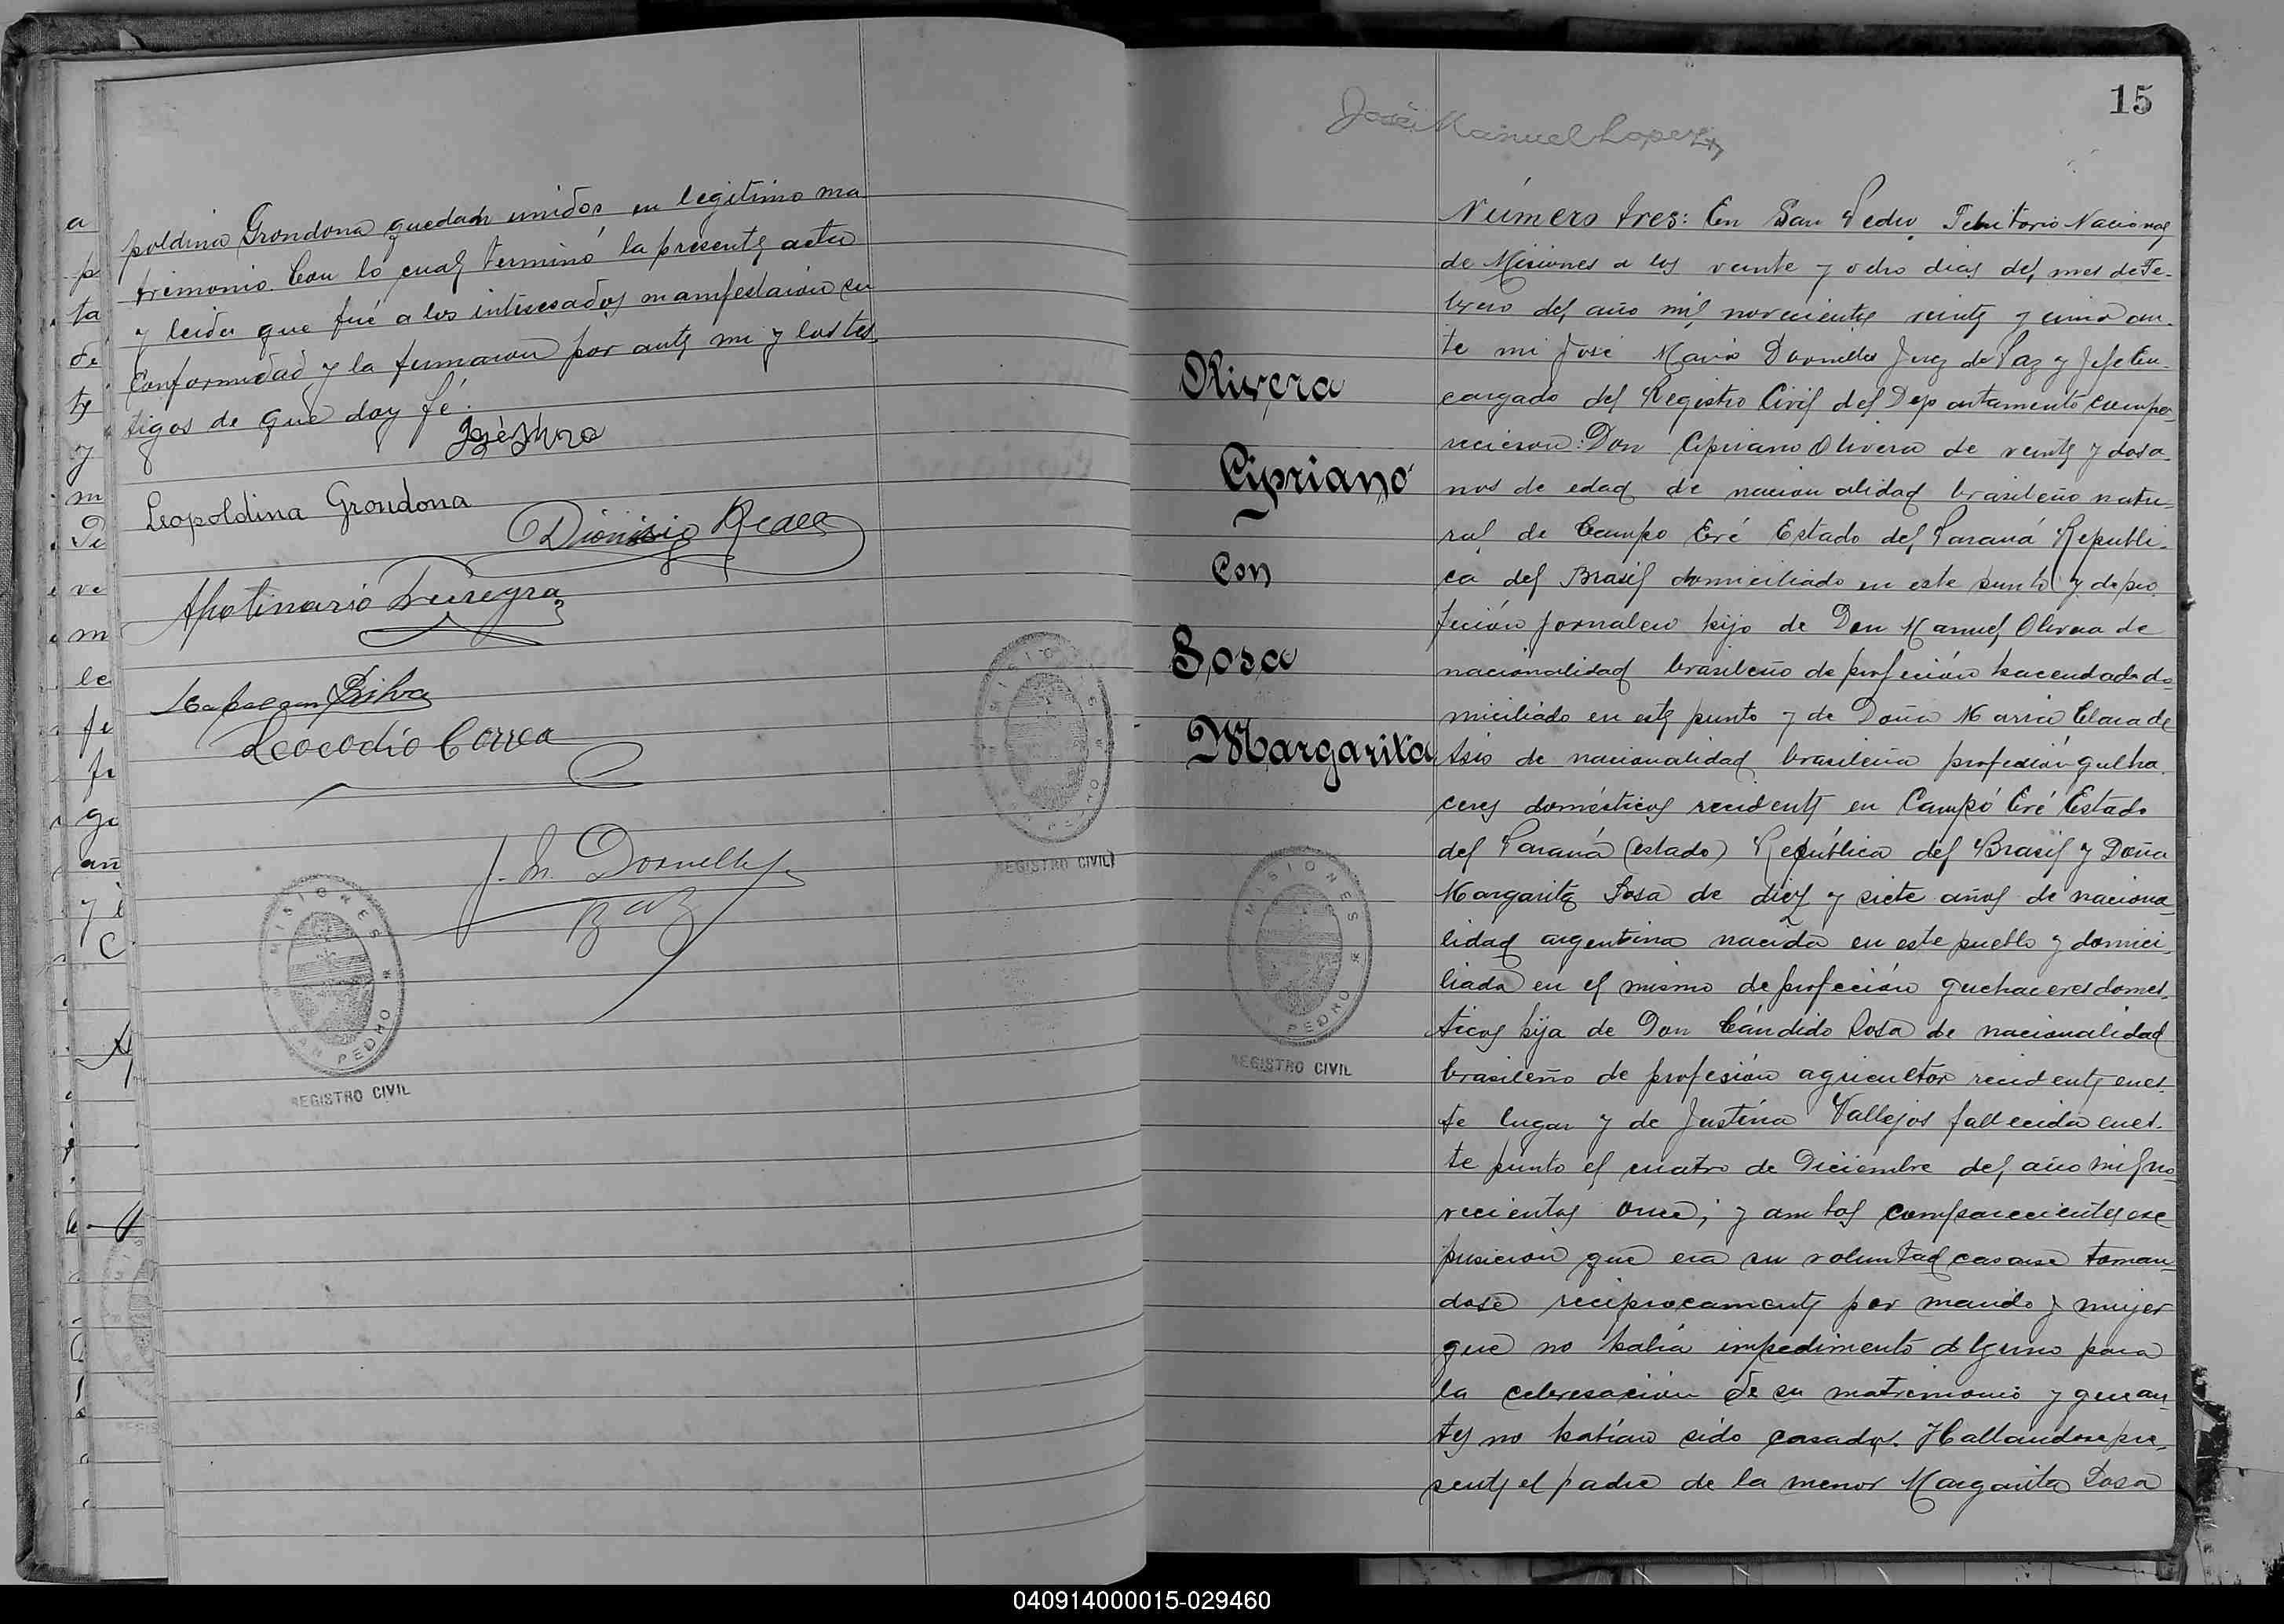 poldina Grondona quedan unidos en legitimo ma
trimonio. Con lo cual terminó la presente acta
y leida que fué a los interesados manifestaron su
conformidad y la firmaron por ante mi y los tes-
tigos de que doy fé.
Leopoldina Grondona
Dionisio
Apolinario
Silva
Leocodio Correa
J. M. Dornelles
MISIONES
SAN PEDRO
REGISTRO CIVIL
MISIONES
PEDRO
REGISTRO CIVIL
15
José Manuel Lopez
Número tres: En San Pedro, Territorio Nacional
de Misiones a los veinte y ocho dias del mes de Fe-
brero del año mil novecientos veinte y uno an-
te mi José Maria Dornelles Juez de Paz y Jefe En-
cargado del Registro Civil del Departamento compa-
recieron: Don Cipriano Olivera de veinte y dos a-
nos de edad de nacionalidad brasileño natu-
ral de Campo Eré Estado del Paraná Republi-
ca del Brasil domiciliado en este punto y de pro
feción jornalero hijo de Don Manuel Olivera de
nacionalidad brasileño de profeción hacendado do-
miciliado en este punto y de Doña Maria Clara de
de nacionalidad brasileña profesión queha
ceres domésticos recidente en Campo Eré Estado
del Paraná (estado) República del Brasil y Doña
Margarita Sosa de diez y siete años de naciona-
lidad argentina nacida en este pueblo y domici-
liada en el mismo de profeción quehaceres domes-
ticos hija de Don Cándido Sosa de nacionalidad
brasileño de profesión agricultor recidente en es-
te lugar y de Justina Vallejos fallecida en es-
te punto el cuatro de Diciembre del año mil no-
vecientos once; y ambos comparecientes ex
pusieron que era su voluntad casarse toman-
dose reciprocamente por marido y mujer
que no habia impedimento alguno para
la celebración de su matrimonio y que an-
tes no habian sido casados. Hallandose pre-
sente el padre de la menor Margarita Sosa
Olivera
Cipriano
Con
Sosa
Margarita
MISIONES
PEDRO
REGISTRO CIVIL
040914000015-029460